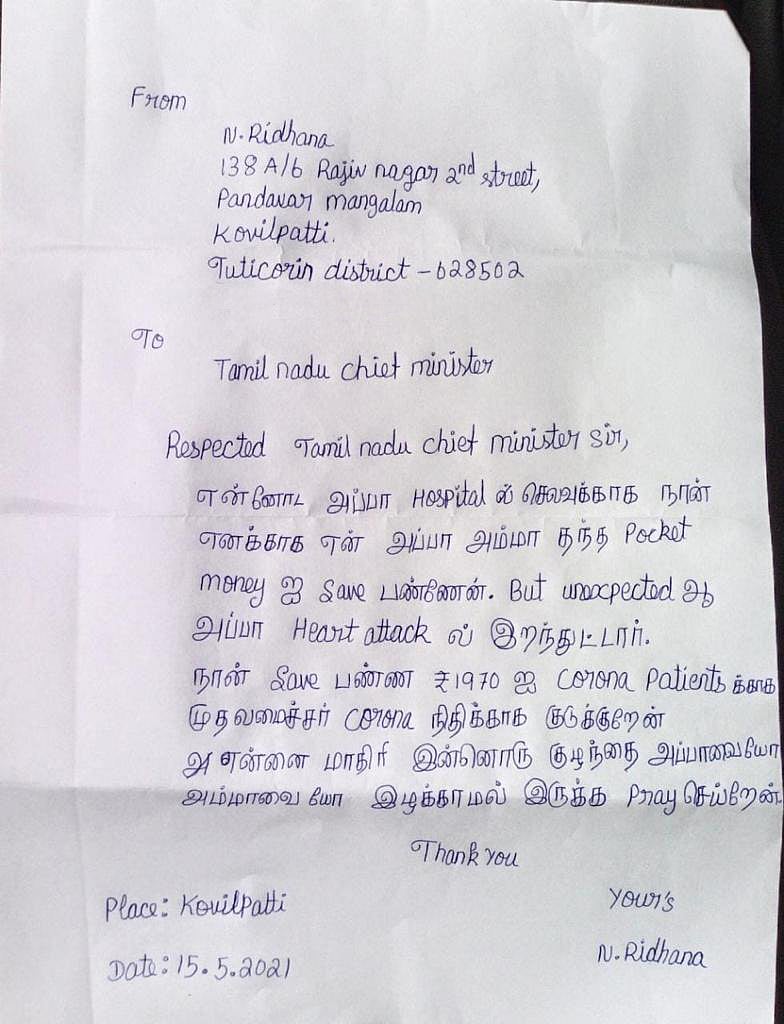 From
N. Ridhana
138 A/6 Rajiv nagar 2nd street,
Pandavar mangalam
Kovilpatti.
Tuticorin district - 628502
To
Tamil nadu chief minister
Respected Tamil nadu chief minister sir,
என்னோட அப்பா Hospital ல் செலவுக்காக நான்
எனக்காக என் அப்பா அம்மா தந்த Pocket
money ஐ save பண்ணேன். But unexpected ஆ
அப்பா Heart attack ல் இறந்துட்டார்.
நான் save பண்ண ₹1970 ஐ corona Patients க்காக
முதலமைச்சர் corona நிதிக்காக குடுக்குறேன்
என்னை மாதிரி இன்னொரு குழந்தை அப்பாவையோ
அம்மாவை யோ இழக்காமல் இருக்க Pray செய்றேன்.
Thank you
Place: Kovilpatti
Your's
Date: 15.5.2021
N. Ridhana